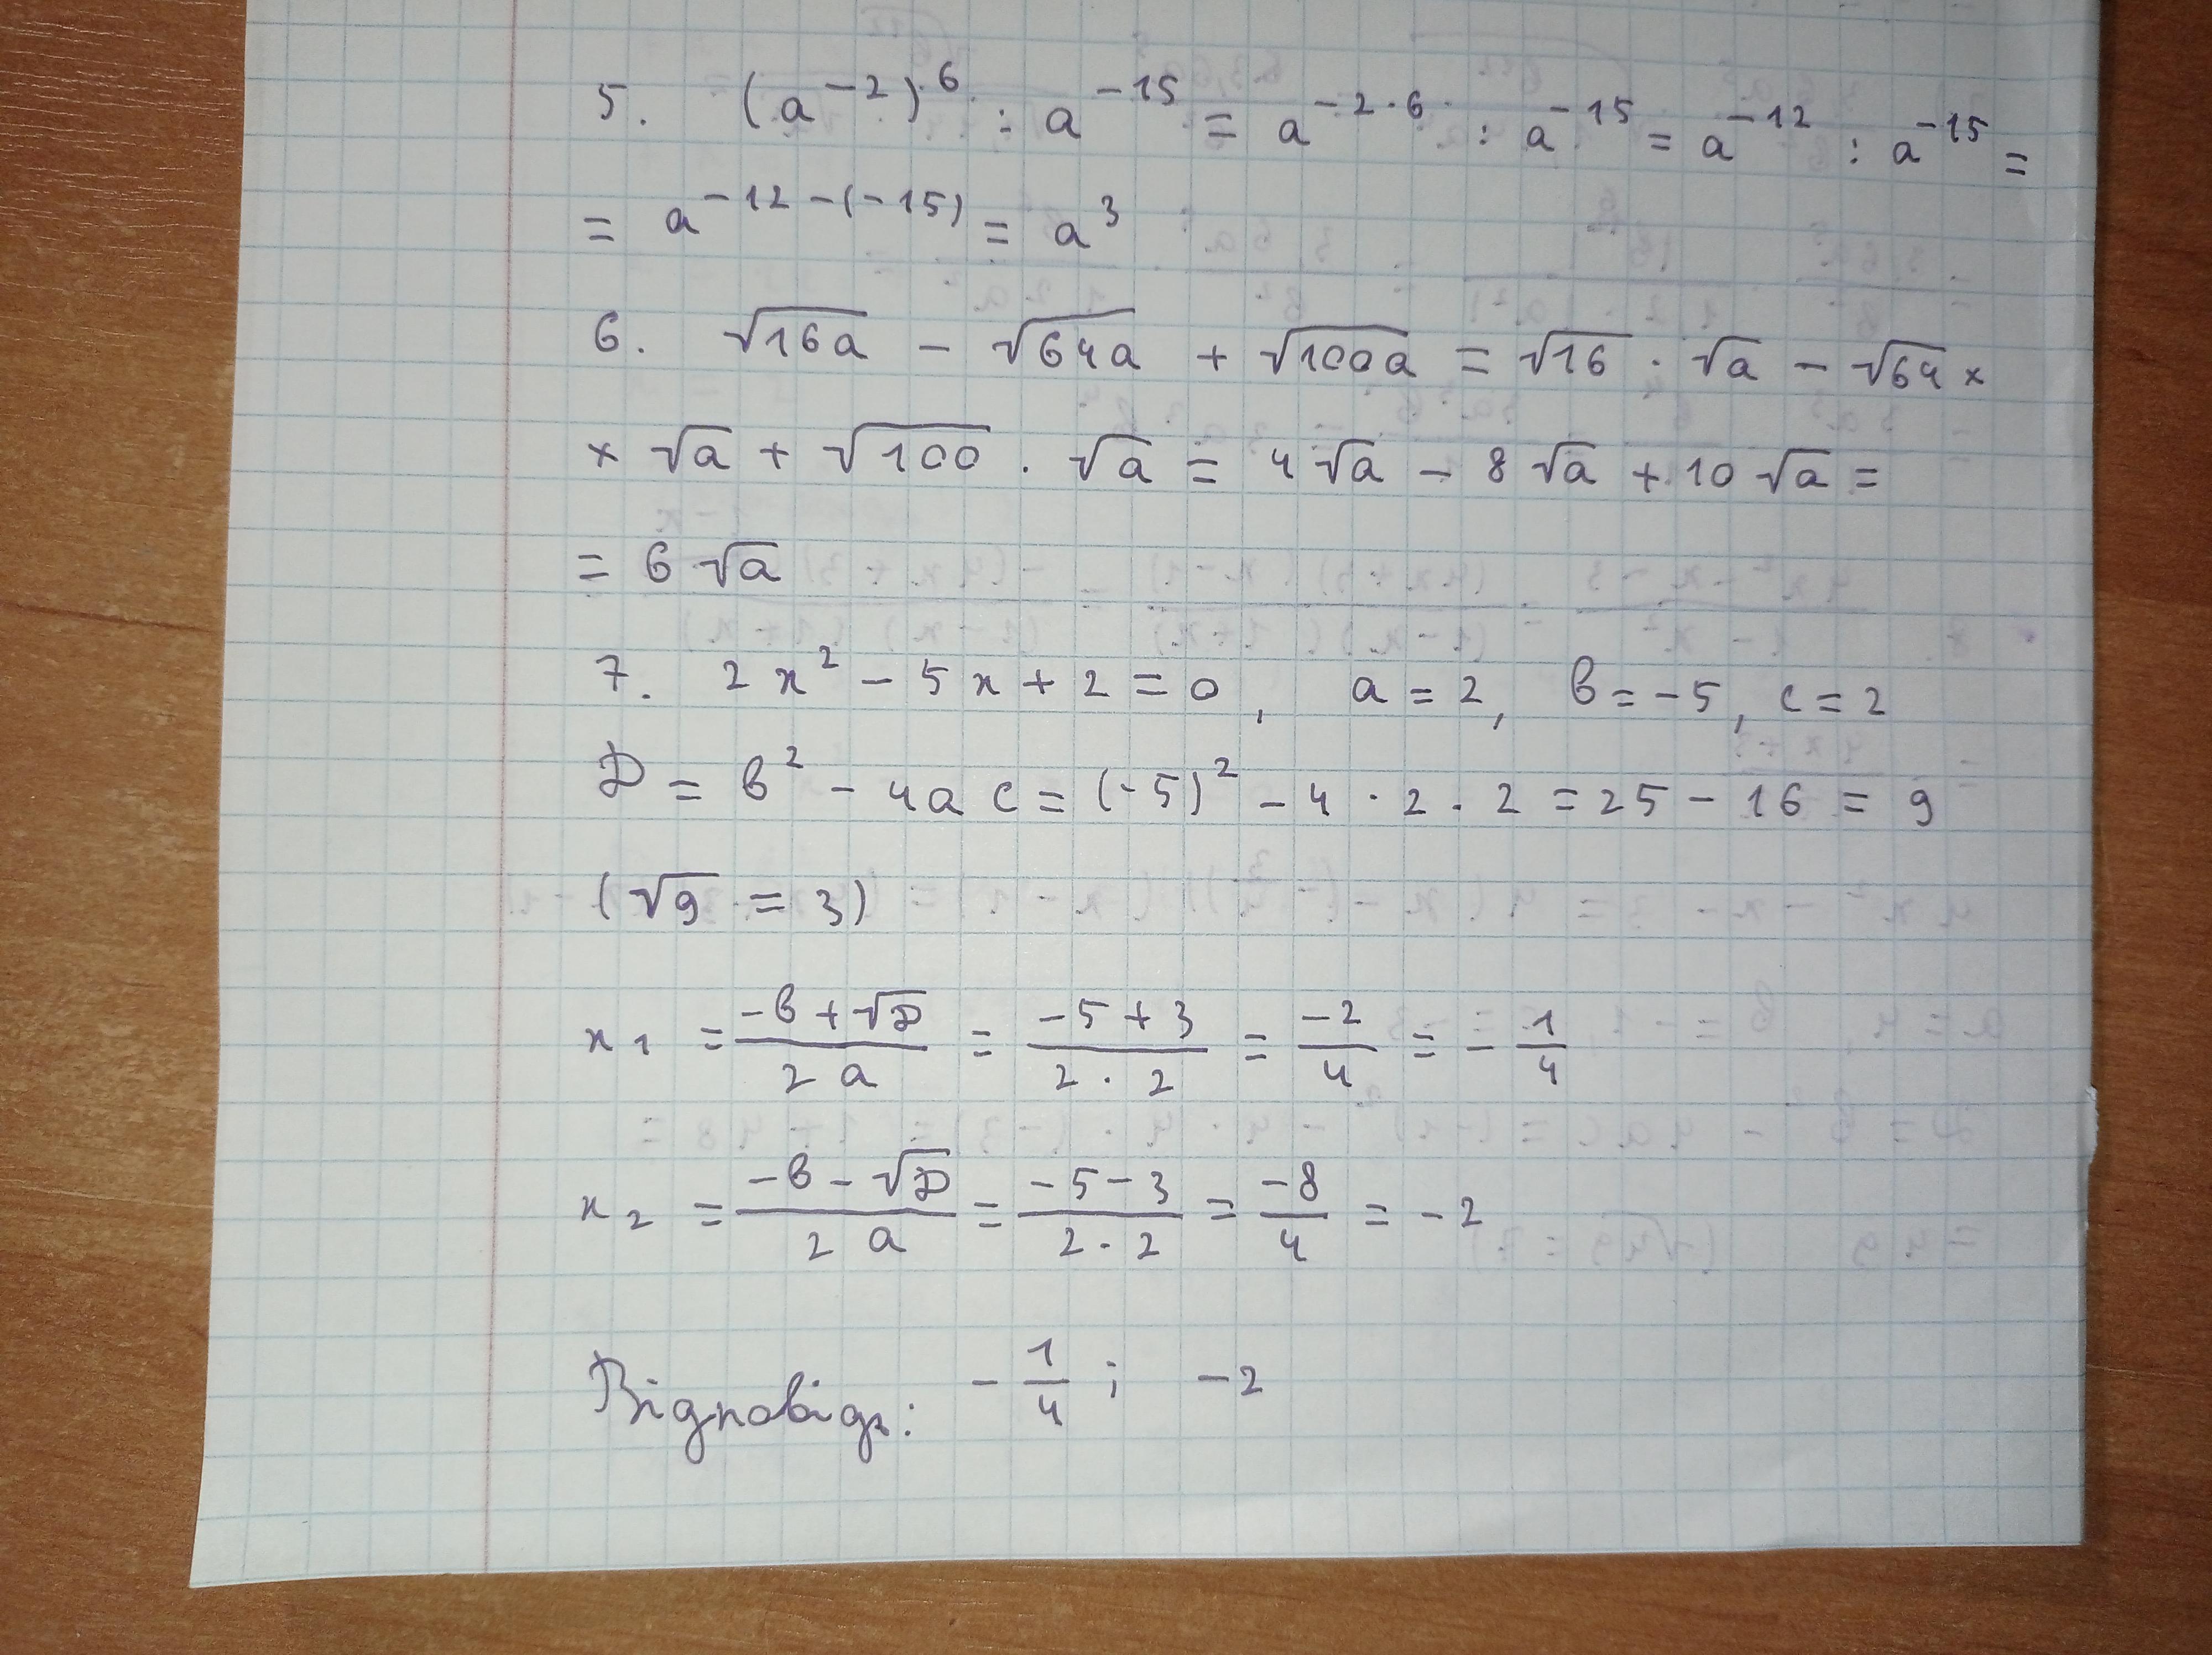 5. (a⁻²)⁶ : a⁻¹⁵ = a⁻²·⁶ : a⁻¹⁵ = a⁻¹² : a⁻¹⁵ =
= a⁻¹²⁻⁽⁻¹⁵⁾ = a³
6. √16a - √64a + √100a = √16 · √a - √64 ×
× √a + √100 · √a = 4√a - 8√a + 10√a =
= 6√a
7. 2x² - 5x + 2 = 0, a = 2, в = -5, c = 2
D = в² - 4ac = (-5)² - 4 · 2 · 2 = 25 - 16 = 9
(√9 = 3)
x₁ = (-в + √D)/(2a) = (-5 + 3)/(2 · 2) = -2/4 = -1/4
x₂ = (-в - √D)/(2a) = (-5 - 3)/(2 · 2) = -8/4 = -2
Відповідь: -1/4 ; -2